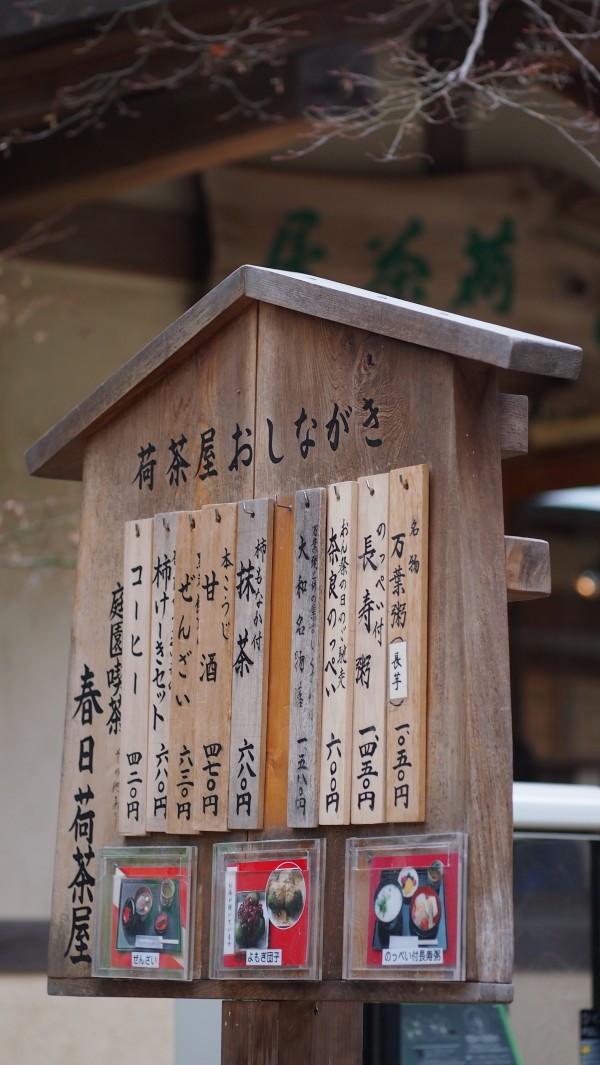 荷茶屋
荷茶屋おしながき
名物
万葉粥(長芋)
一、〇五〇円
のっぺい付
長寿粥
一、四五〇円
おん祭の日のご馳走
奈良のっぺい
六〇〇円
大和名物膳
一、五八〇円
柿もなか付
抹茶
六八〇円
本こうじ
甘酒
四七〇円
ぜんざい
六三〇円
柿けーきセット
六八〇円
コーヒー
四二〇円
庭園喫茶
春日荷茶屋
ぜんざい
よもぎ団子
のっぺい付長寿粥